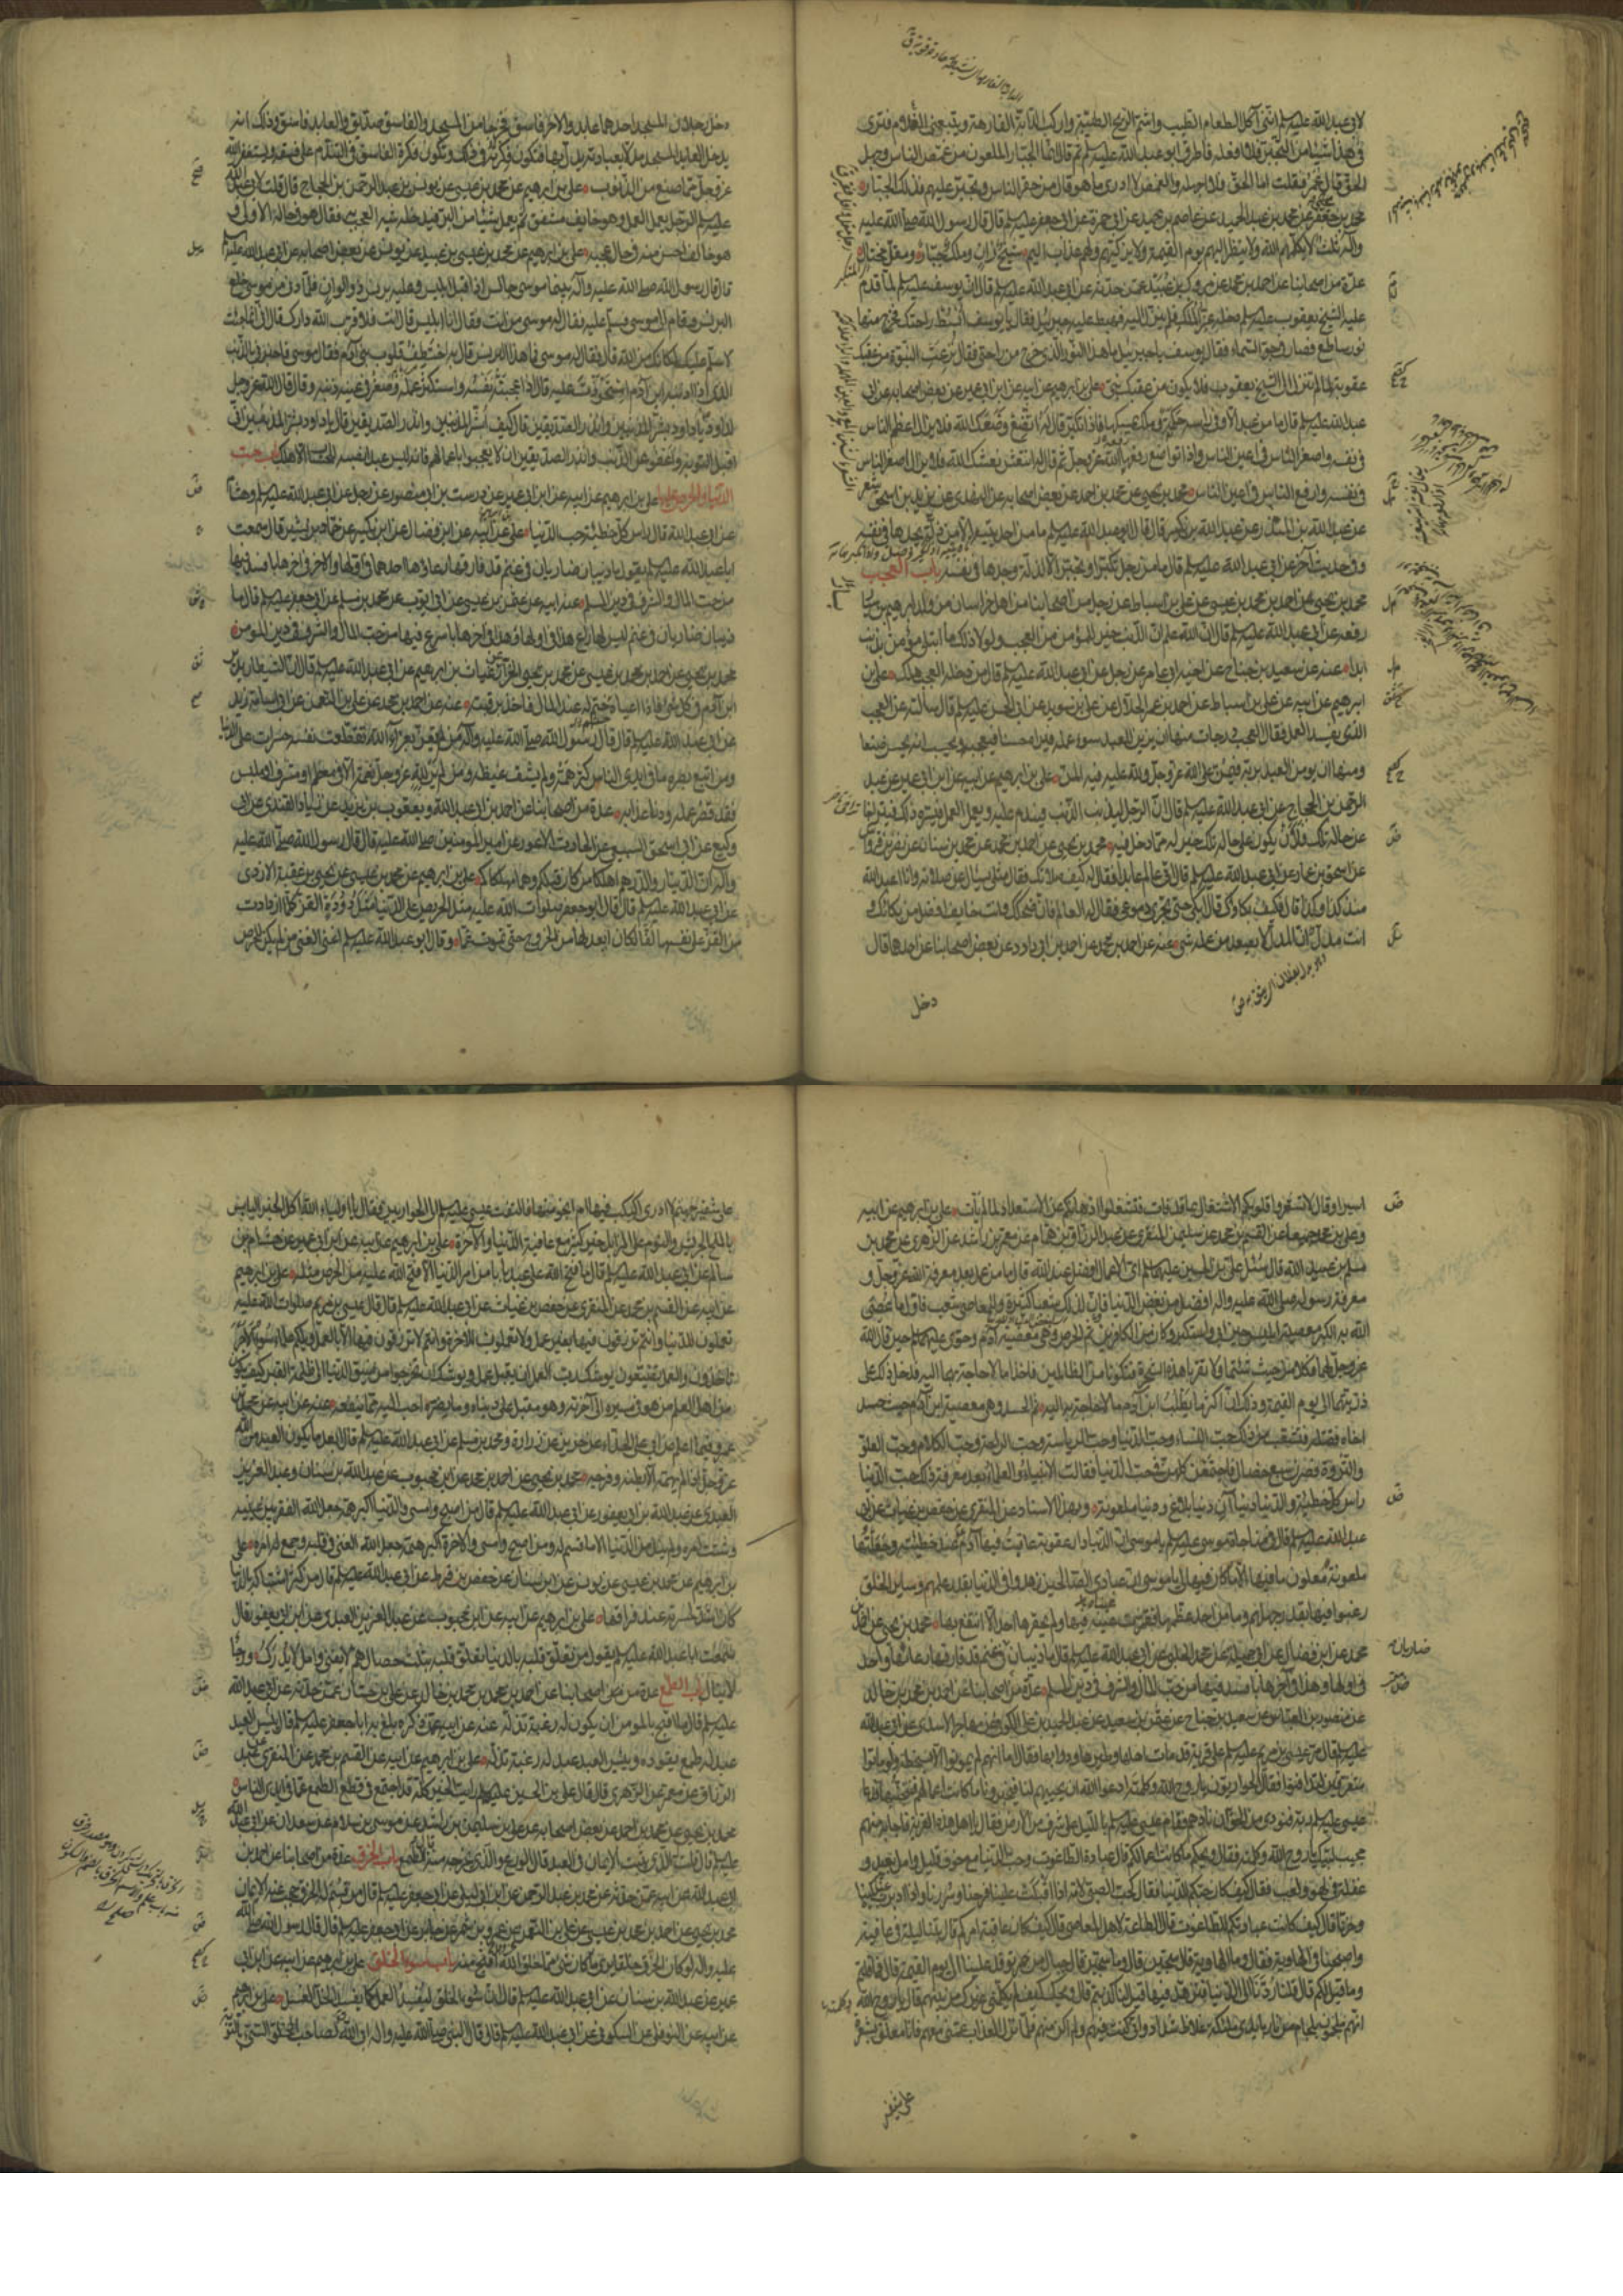 لابي عبد الله عليه السلم انني آكل الطعام الطيب واشم الريح الطيبة واركب الدابة الفارهة ويتبعني الغلام فترى
في هذا شيئا من التجبر فلا افعله فاطرق ابو عبد الله عليه السلم ثم قال انما الجبار الملعون من غمص الناس وجهل
الحق قال عمر فقلت اما الحق فلا اجهله والغمص لا ادري ما هو قال من حقر الناس وتجبر عليهم فذلك الجبار
محمد بن جعفر عن محمد بن عبد الحميد عن عاصم بن حميد عن ابي حمزة عن ابي جعفر عليه السلم قال قال رسول الله صلى الله عليه
وآله ثلثة لا يكلمهم الله ولا ينظر اليهم يوم القيمة ولا يزكيهم ولهم عذاب اليم شيخ زان وملك جبار ومقل مختال
عدة من اصحابنا عن احمد بن محمد عن مروك بن عبيد عمن حدثه عن ابي عبد الله عليه السلم قال ان يوسف عليه السلم لما قدم
عليه الشيخ يعقوب عليه السلم دخله عز الملك فلم ينزل اليه فهبط عليه جبرئيل فقال يا يوسف ابسط راحتك فخرج منها
نور ساطع فصار في جو السماء فقال يوسف يا جبرئيل ما هذا النور الذي خرج من راحتي فقال نزعت النبوة من عقبك
عقوبة لما لم تنزل الى الشيخ يعقوب فلا يكون من عقبك نبي علي بن ابرهيم عن ابيه عن ابن ابي عمير عن بعض اصحابه عن ابي
عبد الله عليه السلم قال ما من عبد الا وفي راسه حكمة وملك يمسكها فاذا تكبر قال له اتضع وضعك الله فلا يزال اعظم الناس
في نفسه واصغر الناس في اعين الناس واذا تواضع رفعها الله عز وجل ثم قال له انتعش نعشك الله فلا يزال اصغر الناس
في نفسه وارفع الناس في اعين الناس محمد بن يحيى عن محمد بن احمد عن بعض اصحابه عن النهدي عن يزيد بن اسحق
عن عبد الله بن المنذر عن عبد الله بن بكير قال قال ابو عبد الله عليه السلم ما من احد يتيه الا من ذلة يجدها في نفسه
وفي حديث آخر عن ابي عبد الله عليه السلم قال ما من رجل تكبر او تجبر الا لذلة وجدها في نفسه باب العجب
محمد بن يحيى عن احمد بن محمد بن عيسى عن علي بن اسباط عن رجل من اصحابنا من اهل خراسان من ولد ابرهيم بن سيار
رفعه عن ابي عبد الله عليه السلم قال ان الله علم ان الذنب خير للمؤمن من العجب ولولا ذلك ما ابتلي مؤمن بذنب
ابدا عنه عن سعيد بن جناح عن اخيه ابي عامر عن رجل عن ابي عبد الله عليه السلم قال من دخله العجب هلك علي بن
ابرهيم عن ابيه عن علي بن اسباط عن احمد بن عمر الحلال عن علي بن سويد عن ابي الحسن عليه السلم قال سالته عن العجب
الذي يفسد العمل فقال العجب درجات منها ان يزين للعبد سوء عمله فيراه حسنا فيعجبه ويحسب انه يحسن صنعا
ومنها ان يؤمن العبد بربه فيمن على الله عز وجل ولله عليه فيه المن علي بن ابرهيم عن ابيه عن ابن ابي عمير عن عبد
الرحمن بن الحجاج عن ابي عبد الله عليه السلم قال ان الرجل ليذنب الذنب فيندم عليه ويعمل العمل فيسره ذلك فيتراخى
عن حاله تلك فلان يكون على حاله تلك خير له مما دخل فيه محمد بن يحيى عن احمد بن محمد عن محمد بن سنان عن نضر بن قرواش
عن اسحق بن عمار عن ابي عبد الله عليه السلم قال اتى عالم عابدا فقال له كيف صلاتك فقال مثلي يسال عن صلاته وانا اعبد الله
منذ كذا وكذا قال فكيف بكاؤك قال ابكي حتى تجري دموعي فقال له العالم فان ضحكك وانت خايف افضل من بكائك و
انت مدل ان المدل لا يصعد من عمله شي عنه عن احمد بن محمد عن احمد بن ابي داود عن بعض اصحابنا عن احدهما قال
دخل
دخل رجلان المسجد احدهما عابد والاخر فاسق فخرجا من المسجد والفاسق صديق والعابد فاسق وذلك انه
يدخل العابد المسجد مدلا بعبادته يدل بها فتكون فكرته في ذلك وتكون فكرة الفاسق في التندم على فسقه ويستغفر الله
عز وجل مما صنع من الذنوب علي بن ابرهيم عن محمد بن عيسى عن يونس عن عبد الرحمن بن الحجاج قال قلت لابي عبد الله
عليه السلم الرجل يعمل العمل وهو خايف مشفق ثم يعمل شيئا من البر فيدخله شبه العجب به فقال هو في حاله الاولى و
هو خائف احسن منه في حال عجبه علي بن ابرهيم عن محمد بن عيسى بن عبيد عن يونس عن بعض اصحابه عن ابي عبد الله عليه السلم
قال قال رسول الله صلى الله عليه وآله بينما موسى جالس اذ اقبل ابليس وعليه برنس ذو الوان فلما دنى من موسى خلع
البرنس وقام الى موسى فسلم عليه فقال له موسى من انت فقال انا ابليس قال انت فلا قرب الله دارك قال اني انما جئت
لاسلم عليك لمكانك من الله قال فقال له موسى فما هذا البرنس قال به اختطف قلوب بني آدم فقال موسى فاخبرني بالذنب
الذي اذا اذنبه ابن آدم استحوذت عليه قال اذا اعجبته نفسه واستكثر عمله وصغر في عينه ذنبه وقال قال الله عز وجل
لداود يا داود بشر المذنبين وانذر الصديقين قال كيف ابشر المذنبين وانذر الصديقين قال يا داود بشر المذنبين اني
اقبل التوبة واعفو عن الذنب وانذر الصديقين ان لا يعجبوا باعمالهم فانه ليس عبد انصبه للحساب الا هلك باب حب
الدنيا والحرص عليها علي بن ابرهيم عن ابيه عن ابن ابي عمير عن درست بن ابي منصور عن رجل عن ابي عبد الله عليه السلم وهشام
عن ابي عبد الله قال راس كل خطيئة حب الدنيا علي عن ابيه عن ابن فضال عن ابن بكير عن حماد بن بشير قال سمعت
ابا عبد الله عليه السلم يقول ما ذئبان ضاريان في غنم قد فارقها رعاؤها احدهما في اولها والاخر في اخرها بافسد فيها
من حب المال والشرف في دين المسلم عنه عن ابيه عن عثمن بن عيسى عن ابي ايوب عن محمد بن مسلم عن ابي جعفر عليه السلم قال ما
ذئبان ضاريان في غنم ليس لها راع هذا في اولها وهذا في اخرها باسرع فيها من حب المال والشرف في دين المؤمن
محمد بن يحيى عن احمد بن محمد بن عيسى عن محمد بن يحيى الخزاز عن غياث بن ابرهيم عن ابي عبد الله عليه السلم قال ان الشيطان يدير
ابن آدم في كل شي فاذا اعياه جثم له عند المال فاخذ برقبته عنه عن احمد بن محمد عن علي بن النعمن عن ابي اسامة زيد
عن ابي عبد الله عليه السلم قال قال رسول الله صلى الله عليه وآله من لم يتعز بعزاء الله تقطعت نفسه حسرات على الدنيا
ومن اتبع بصره ما في ايدي الناس كثر همه ولم يشف غيظه ومن لم ير لله عز وجل عليه نعمة الا في مطعم او مشرب او ملبس
فقد قصر عمله ودنا عذابه عدة من اصحابنا عن احمد بن ابي عبد الله ويعقوب بن يزيد عن زياد القندي عن ابي
وكيع عن ابي اسحق السبيعي عن الحارث الاعور عن امير المؤمنين صلى الله عليه قال قال رسول الله صلى الله عليه
وآله ان الدينار والدرهم اهلكا من كان قبلكم وهما مهلكاكم علي بن ابرهيم عن محمد بن عيسى عن يحيى بن عقبة الازدي
عن ابي عبد الله عليه السلم قال قال ابو جعفر صلوات الله عليه مثل الحريص على الدنيا مثل دودة القز كلما ازدادت
من القز على نفسها لفا كان ابعد لها من الخروج حتى تموت غما وقال ابو عبد الله عليه السلم اغنى الغنى من لم يكن للحرص
اسيرا وقال لا تشعروا قلوبكم الاشتغال بما قد فات فتشغلوا اذهانكم عن الاستعداد لما لم يات علي بن ابرهيم عن ابيه
وعلي بن محمد جميعا عن القسم بن محمد عن سليمن المنقري عن عبد الرزاق بن همام عن معمر بن راشد عن الزهري عن محمد بن
مسلم بن عبيد الله قال سئل علي بن الحسين عليهما السلم اي الاعمال افضل عند الله قال ما من عمل بعد معرفة الله عز وجل و
معرفة رسوله صلى الله عليه واله افضل من بغض الدنيا فان لذلك لشعبا كثيرة وللمعاصي شعب فاول ما عصي
الله به الكبر معصية ابليس حين ابى واستكبر وكان من الكافرين ثم الحرص وهي معصية آدم وحوى عليهما السلم حين قال الله
عز وجل لهما فكلا من حيث شئتما ولا تقربا هذه الشجرة فتكونا من الظالمين فاخذا ما لا حاجة بهما اليه فدخل ذلك على
ذريتهما الى يوم القيمة وذلك ان اكثر ما يطلب ابن آدم ما لا حاجة به اليه ثم الحسد وهي معصية ابن آدم حيث حسد
اخاه فقتله فتشعب من ذلك حب النساء وحب الدنيا وحب الرياسة وحب الراحة وحب الكلام وحب العلو
والثروة فصرن سبع خصال فاجتمعن كلهن في حب الدنيا فقالت الانبياء والعلماء بعد معرفة ذلك حب الدنيا
راس كل خطيئة والدنيا دنياآن دنيا بلاغ ودنيا ملعونة وبهذا الاسناد عن المنقري عن حفص بن غياث عن ابي
عبد الله عليه السلم قال في مناجاة موسى عليه السلم يا موسى ان الدنيا دار عقوبة عاقبت فيها آدم عند خطيئته وجعلتها
ملعونة ملعون ما فيها الا ما كان فيها لي يا موسى ان عبادي الصالحين زهدوا في الدنيا بقدر علمهم وساير الخلق
رغبوا فيها بقدر جهلهم وما من احد عظمها فقرت عينه فيها ولم يحقرها احد الا انتفع بها محمد بن يحيى عن احمد بن
محمد عن ابن فضال عن ابي جميلة عن محمد الحلبي عن ابي عبد الله عليه السلم قال ما ذئبان في غنم قد فارقها رعاؤها واحد
في اولها وهذا في آخرها بافسد فيها من حب المال والشرف في دين المسلم عدة من اصحابنا عن احمد بن محمد بن خالد
عن منصور بن العباس عن سعيد بن جناح عن عثمن بن سعيد عن عبد الحميد بن علي الكوفي عن مهاجر الاسدي عن ابي عبد الله
عليه السلم قال مر عيسى بن مريم عليه السلم على قرية قد مات اهلها وطيرها ودوابها فقال اما انهم لم يموتوا الا بسخطة ولو ماتوا
متفرقين لتدافنوا فقال الحواريون يا روح الله وكلمته ادعوا الله ان يحييهم لنا فيخبرونا ما كانت اعمالهم فنجتنبها فدعا
عيسى عليه السلم ربه فنودي من الجو ان نادهم فقام عيسى عليه السلم بالليل على شرف من الارض فقال يا اهل هذه القرية فاجابه منهم
مجيب لبيك يا روح الله وكلمته فقال ويحكم ما كانت اعمالكم قال عبادة الطاغوت وحب الدنيا مع خوف قليل وامل بعيد و
غفلة في لهو ولعب فقال كيف كان حبكم للدنيا قال كحب الصبي لامه اذا اقبلت علينا فرحنا وسررنا واذا ادبرت بكينا
وحزنا قال كيف كانت عبادتكم للطاغوت قال الطاعة لاهل المعاصي قال كيف كان عاقبة امركم قال بتنا ليلة في عافية
واصبحنا في الهاوية فقال وما الهاوية قال سجين قال وما سجين قال جبال من جمر توقد علينا الى يوم القيمة قال فما قلتم
وما قيل لكم قال قلنا ردنا الى الدنيا فنزهد فيها قيل لنا كذبتم قال ويحك كيف لم يكلمني غيرك من بينهم قال يا روح الله
انهم ملجمون بلجام من نار بايدي ملئكة غلاظ شداد واني كنت فيهم ولم اكن منهم فلما نزل العذاب عمني معهم فانا معلق بشعرة
على شفير
على شفير جهنم لا ادري اكبكب فيها ام انجو منها فالتفت عيسى عليه السلم الى الحواريين فقال يا اولياء الله اكل الخبز اليابس
بالملح الجريش والنوم على المزابل خير كثير مع عافية الدنيا والآخرة علي بن ابرهيم عن ابيه عن ابن ابي عمير عن هشام بن
سالم عن ابي عبد الله عليه السلم قال ما فتح الله على عبد بابا من امر الدنيا الا فتح الله عليه من الحرص مثله علي بن ابرهيم
عن ابيه عن القسم بن محمد عن المنقري عن حفص بن غياث عن ابي عبد الله عليه السلم قال قال عيسى بن مريم صلوات الله عليه
تعملون للدنيا وانتم ترزقون فيها بغير عمل ولا تعملون للاخرة وانتم لا ترزقون فيها الا بالعمل ويلكم علماء سوء الاجر
تاخذون والعمل تضيعون يوشك رب العمل ان يقبل عمله ويوشك ان تخرجوا من ضيق الدنيا الى ظلمة القبر كيف يكون
من اهل العلم من هو في مسيره الى آخرته وهو مقبل على دنياه وما يضره احب اليه مما ينفعه عنه عن ابيه عن محمد بن
عمرو فيما اعلم عن ابي علي الحذاء عن حريز عن زرارة ومحمد بن مسلم عن ابي عبد الله عليه السلم قال ابعد ما يكون العبد من الله
عز وجل اذا لم يهمه الا بطنه وفرجه محمد بن يحيى عن احمد بن محمد عن ابن محبوب عن عبد الله بن سنان وعبد العزيز
العبدي عن عبد الله بن ابي يعفور عن ابي عبد الله عليه السلم قال من اصبح وامسى والدنيا اكبر همه جعل الله الفقر بين عينيه
وشتت امره ولم ينل من الدنيا الا ما قسم له ومن اصبح وامسى والاخرة اكبر همه جعل الله الغنى في قلبه وجمع له امره علي
بن ابرهيم عن محمد بن عيسى عن يونس عن ابن سنان عن حفص بن قرط عن ابي عبد الله عليه السلم قال من كثر اشتباكه بالدنيا
كان اشد لحسرته عند فراقها علي بن ابرهيم عن ابيه عن ابن محبوب عن عبد العزيز العبدي عن ابن ابي يعفور قال
سمعت ابا عبد الله عليه السلم يقول من تعلق قلبه بالدنيا تعلق قلبه بثلث خصال هم لا يفنى وامل لا يدرك ورجاء
لا ينال باب الطمع عدة من اصحابنا عن احمد بن محمد بن خالد عن علي بن حسان عمن حدثه عن ابي عبد الله
عليه السلم قال ما اقبح بالمؤمن ان يكون له رغبة تذله عنه عن ابيه عمن ذكره بلغ به ابا جعفر عليه السلم قال بئس العبد
عبد له طمع يقوده وبئس العبد عبد له رغبة تذله علي بن ابرهيم عن ابيه عن القسم بن محمد عن المنقري عن عبد
الرزاق عن معمر عن الزهري قال قال علي بن الحسين عليهما السلم رايت الخير كله قد اجتمع في قطع الطمع عما في ايدي الناس
محمد بن يحيى عن محمد بن احمد عن بعض اصحابه عن علي بن سليمن بن رشيد عن موسى بن سلام عن سعدان عن ابي عبد الله
عليه السلم قال قلت الذي يثبت الايمان في العبد قال الورع والذي يخرجه منه قال الطمع باب الخرق عدة من اصحابنا عن احمد بن
ابي عبد الله عن ابيه عمن حدثه عن محمد بن عبد الرحمن بن ابي ليلى عن ابي جعفر عليه السلم قال من قسم له الخرق حجب عنه الايمان
محمد بن يحيى عن احمد بن محمد بن عيسى عن علي بن النعمن عن عمرو بن شمر عن جابر عن ابي جعفر عليه السلم قال قال رسول الله صلى الله
عليه واله لو كان الخرق خلقا يرى ما كان شي مما خلق الله اقبح منه باب سوء الخلق علي بن ابرهيم عن ابيه عن ابن ابي
عمير عن عبد الله بن سنان عن ابي عبد الله عليه السلم قال ان سوء الخلق ليفسد العمل كما يفسد الخل العسل علي بن ابرهيم
عن ابيه عن النوفلي عن السكوني عن ابي عبد الله عليه السلم قال قال النبي صلى الله عليه واله ابى الله لصاحب الخلق السيئ بالتوبة